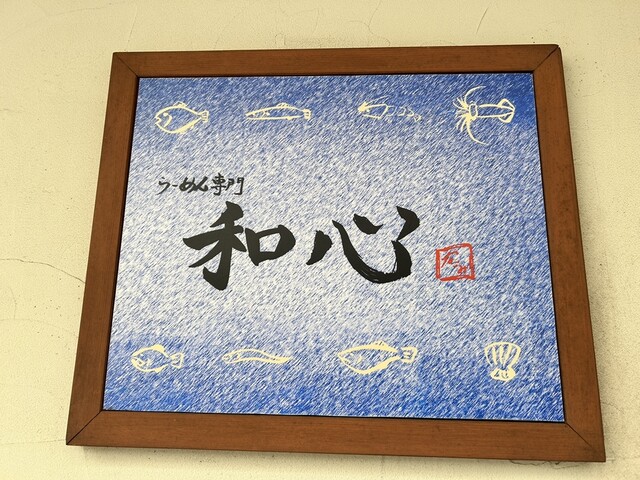 らーめん専門
和心